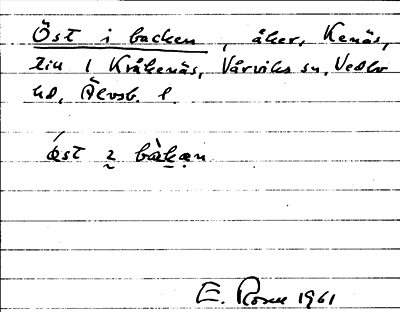 Öst i backen, åker, Kenäs,
till 1 Kråkenäs, Vårviks sn, Vedbo
hd, Älvsb. l.
óst ı bàkən
E. Rosne 1961